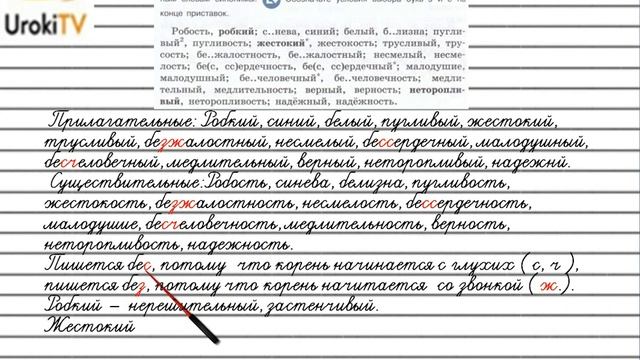 UrokiTV
конце приставок.
Робость, робкий; с..нева, синий; белый, б..лизна; пугли-
вый², пугливость; жестокий*, жестокость; трусливый, тру-
сость; бе..жалостность, бе..жалостный; несмелый, несме-
лость; бе(с, сс)ердечность, бе(с, сс)ердечный*; малодушие,
малодушный; бе..человечный*, бе..человечность; медли-
тельный, медлительность; верный, верность; неторопли-
вый, неторопливость; надёжный, надёжность.
Прилагательные: Робкий, синий, белый, пугливый, жестокий,
трусливый, безжалостный, несмелый, бессердечный, малодушный,
бесчеловечный, медлительный, верный, неторопливый, надежнй.
Существительные:Робость, синева, белизна, пугливость,
жестокость, безжалостность, несмелость, бессердечность,
малодушие, бесчеловечность, медлительность, верность,
неторопливость, надежность.
Пишется бес, потому что корень начинается с глухих ( с, ч ),
пишется без, потому что корень начитается со звонкой ( ж.).
Робкий – нерешительный, застенчивый.
Жестокий